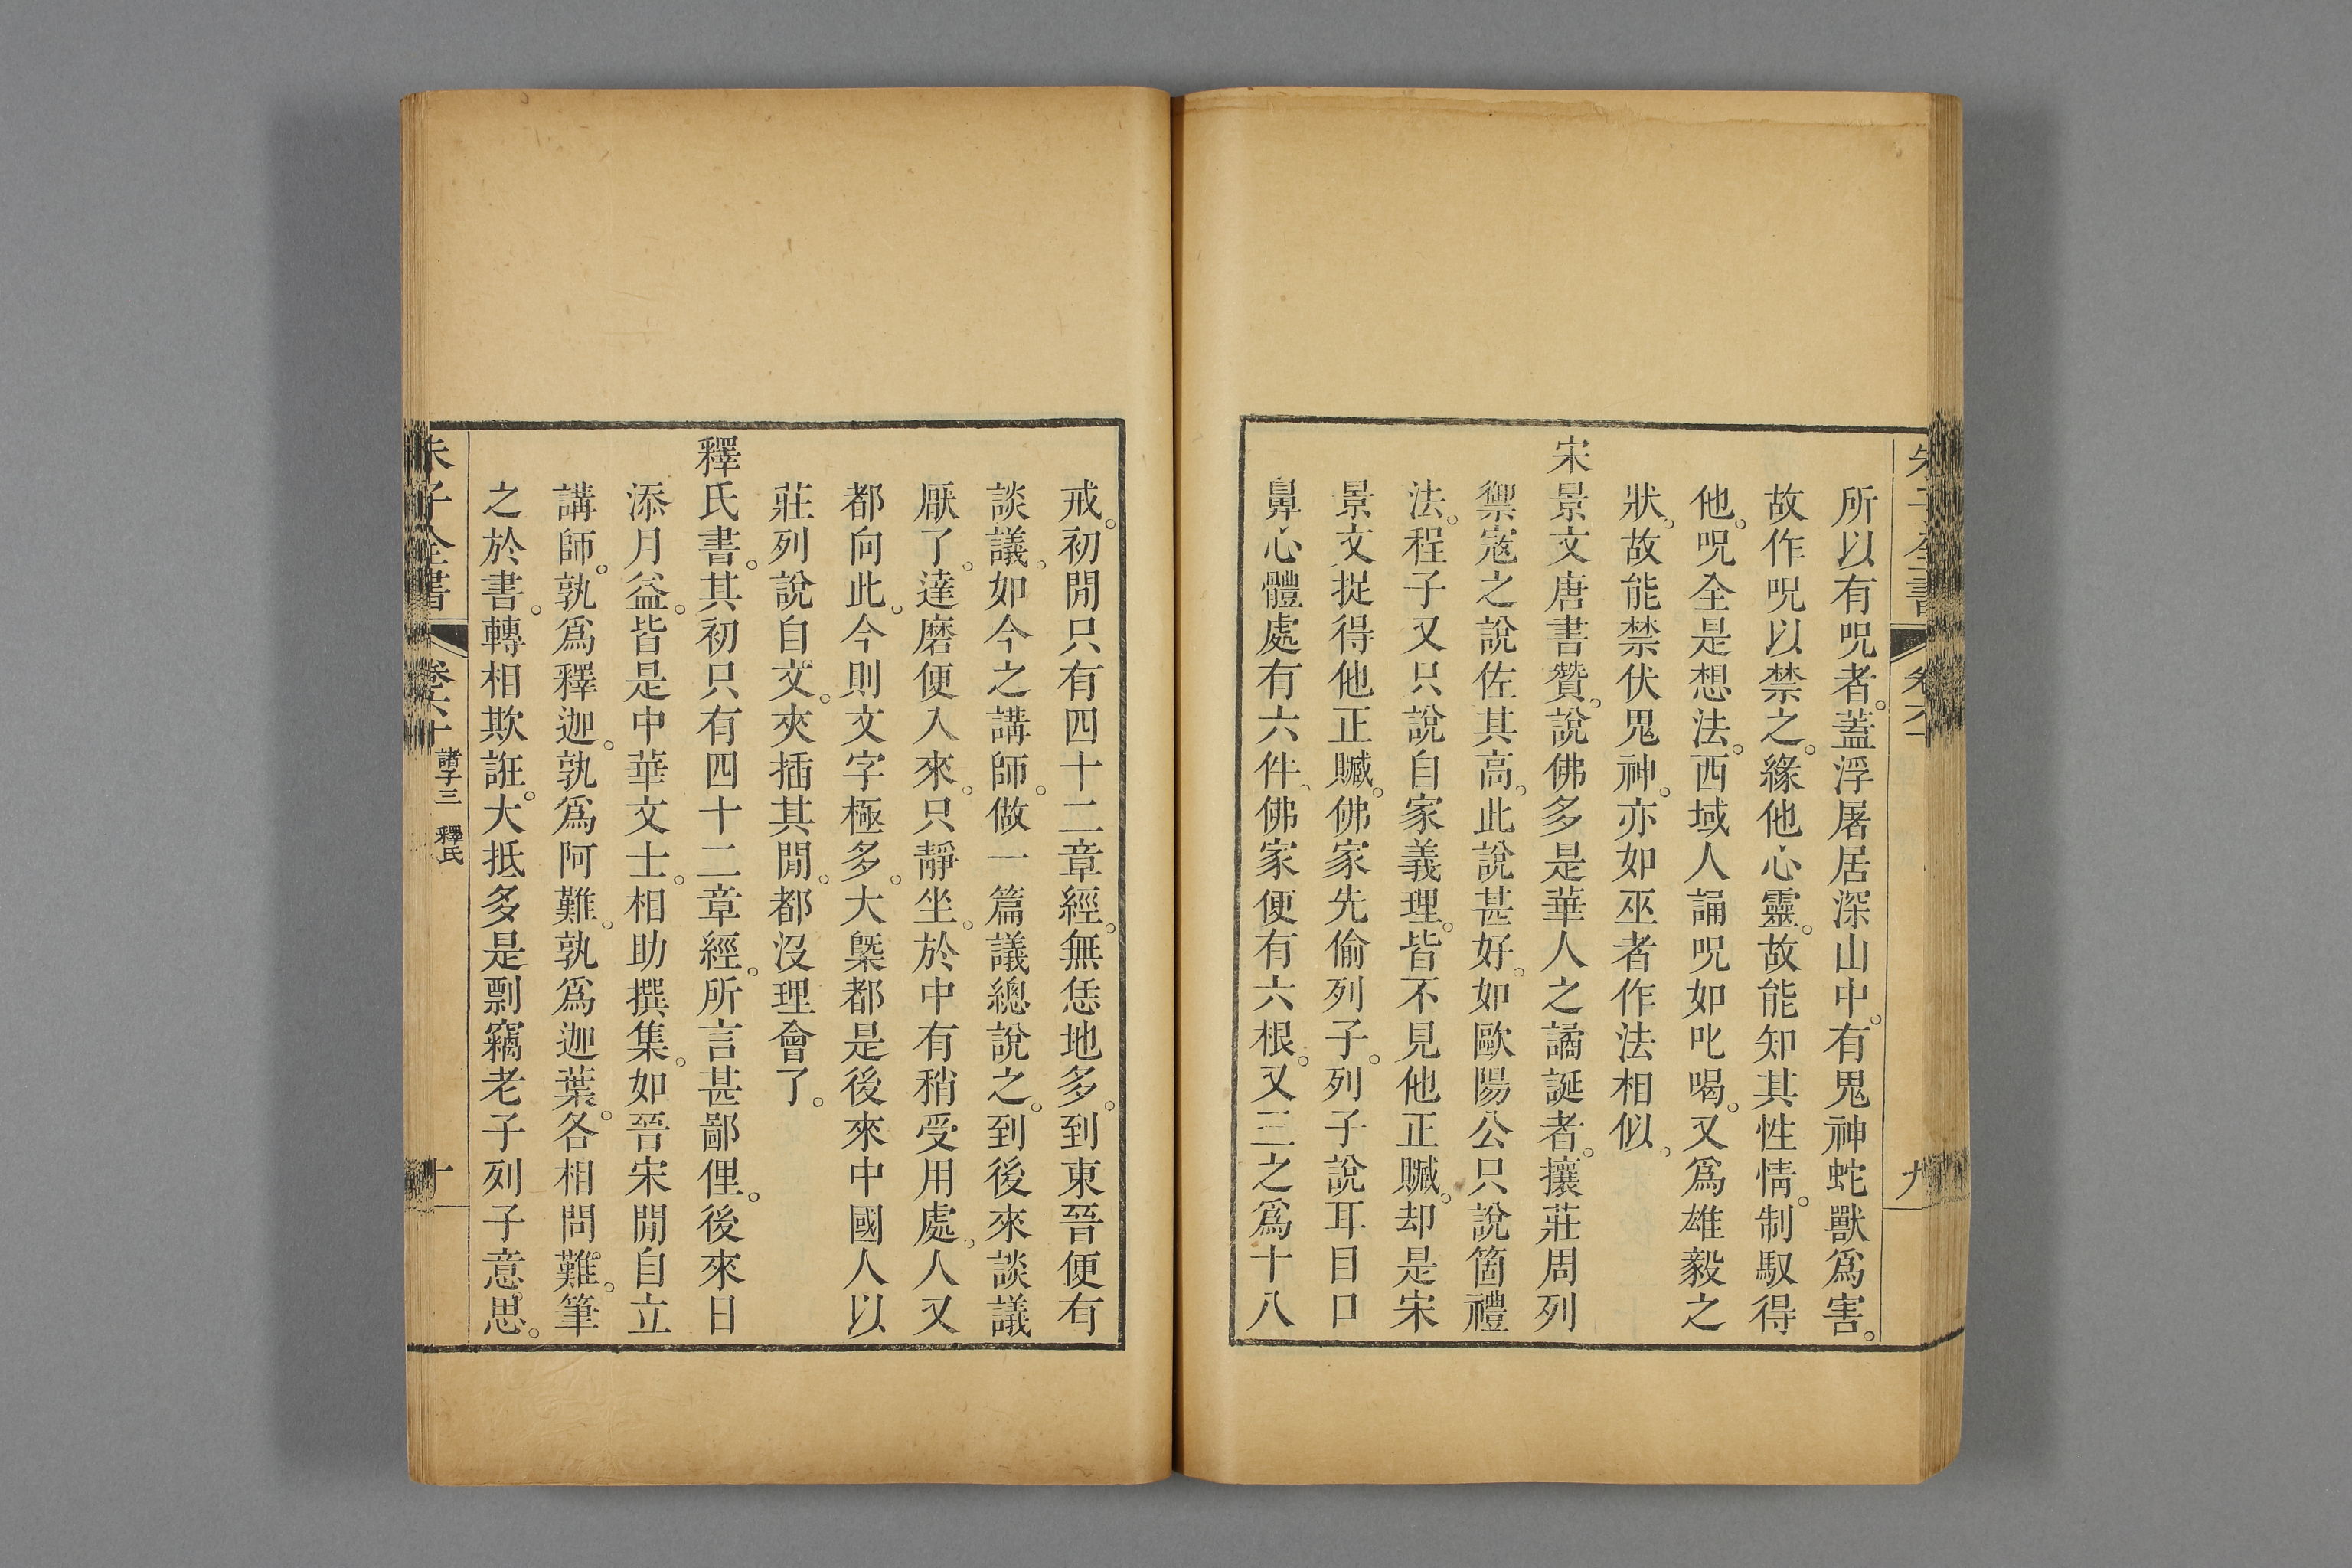 朱子全書 卷六十 九
所以有呪者。蓋浮屠居深山中。有鬼神蛇獸爲害。
故作呪以禁之。緣他心靈。故能知其性情。制馭得
他。呪全是想法。西域人誦呪如叱喝。又爲雄毅之
狀。故能禁伏鬼神。亦如巫者作法相似。
宋景文唐書贊。說佛多是華人之譎誕者。攘莊周列
禦寇之說佐其高。此說甚好。如歐陽公只說箇禮
法。程子又只說自家義理。皆不見他正贓。却是宋
景文捉得他正贓。佛家先偷列子。列子說耳目口
鼻心體處有六件。佛家便有六根。又三之爲十八
戒。初閒只有四十二章經。無恁地多。到東晉便有
談議。如今之講師。做一篇議總說之。到後來談議
厭了。達磨便入來。只靜坐。於中有稍受用處。人又
都向此。今則文字極多。大槩都是後來中國人以
莊列說自文。夾插其閒。都沒理會了。
釋氏書。其初只有四十二章經。所言甚鄙俚。後來日
添月益。皆是中華文士。相助撰集。如晉宋閒自立
講師。孰爲釋迦。孰爲阿難。孰爲迦葉。各相問難。筆
之於書。轉相欺誑。大抵多是剽竊老子列子意思。
朱子全書 卷六十 諸子三 釋氏 十